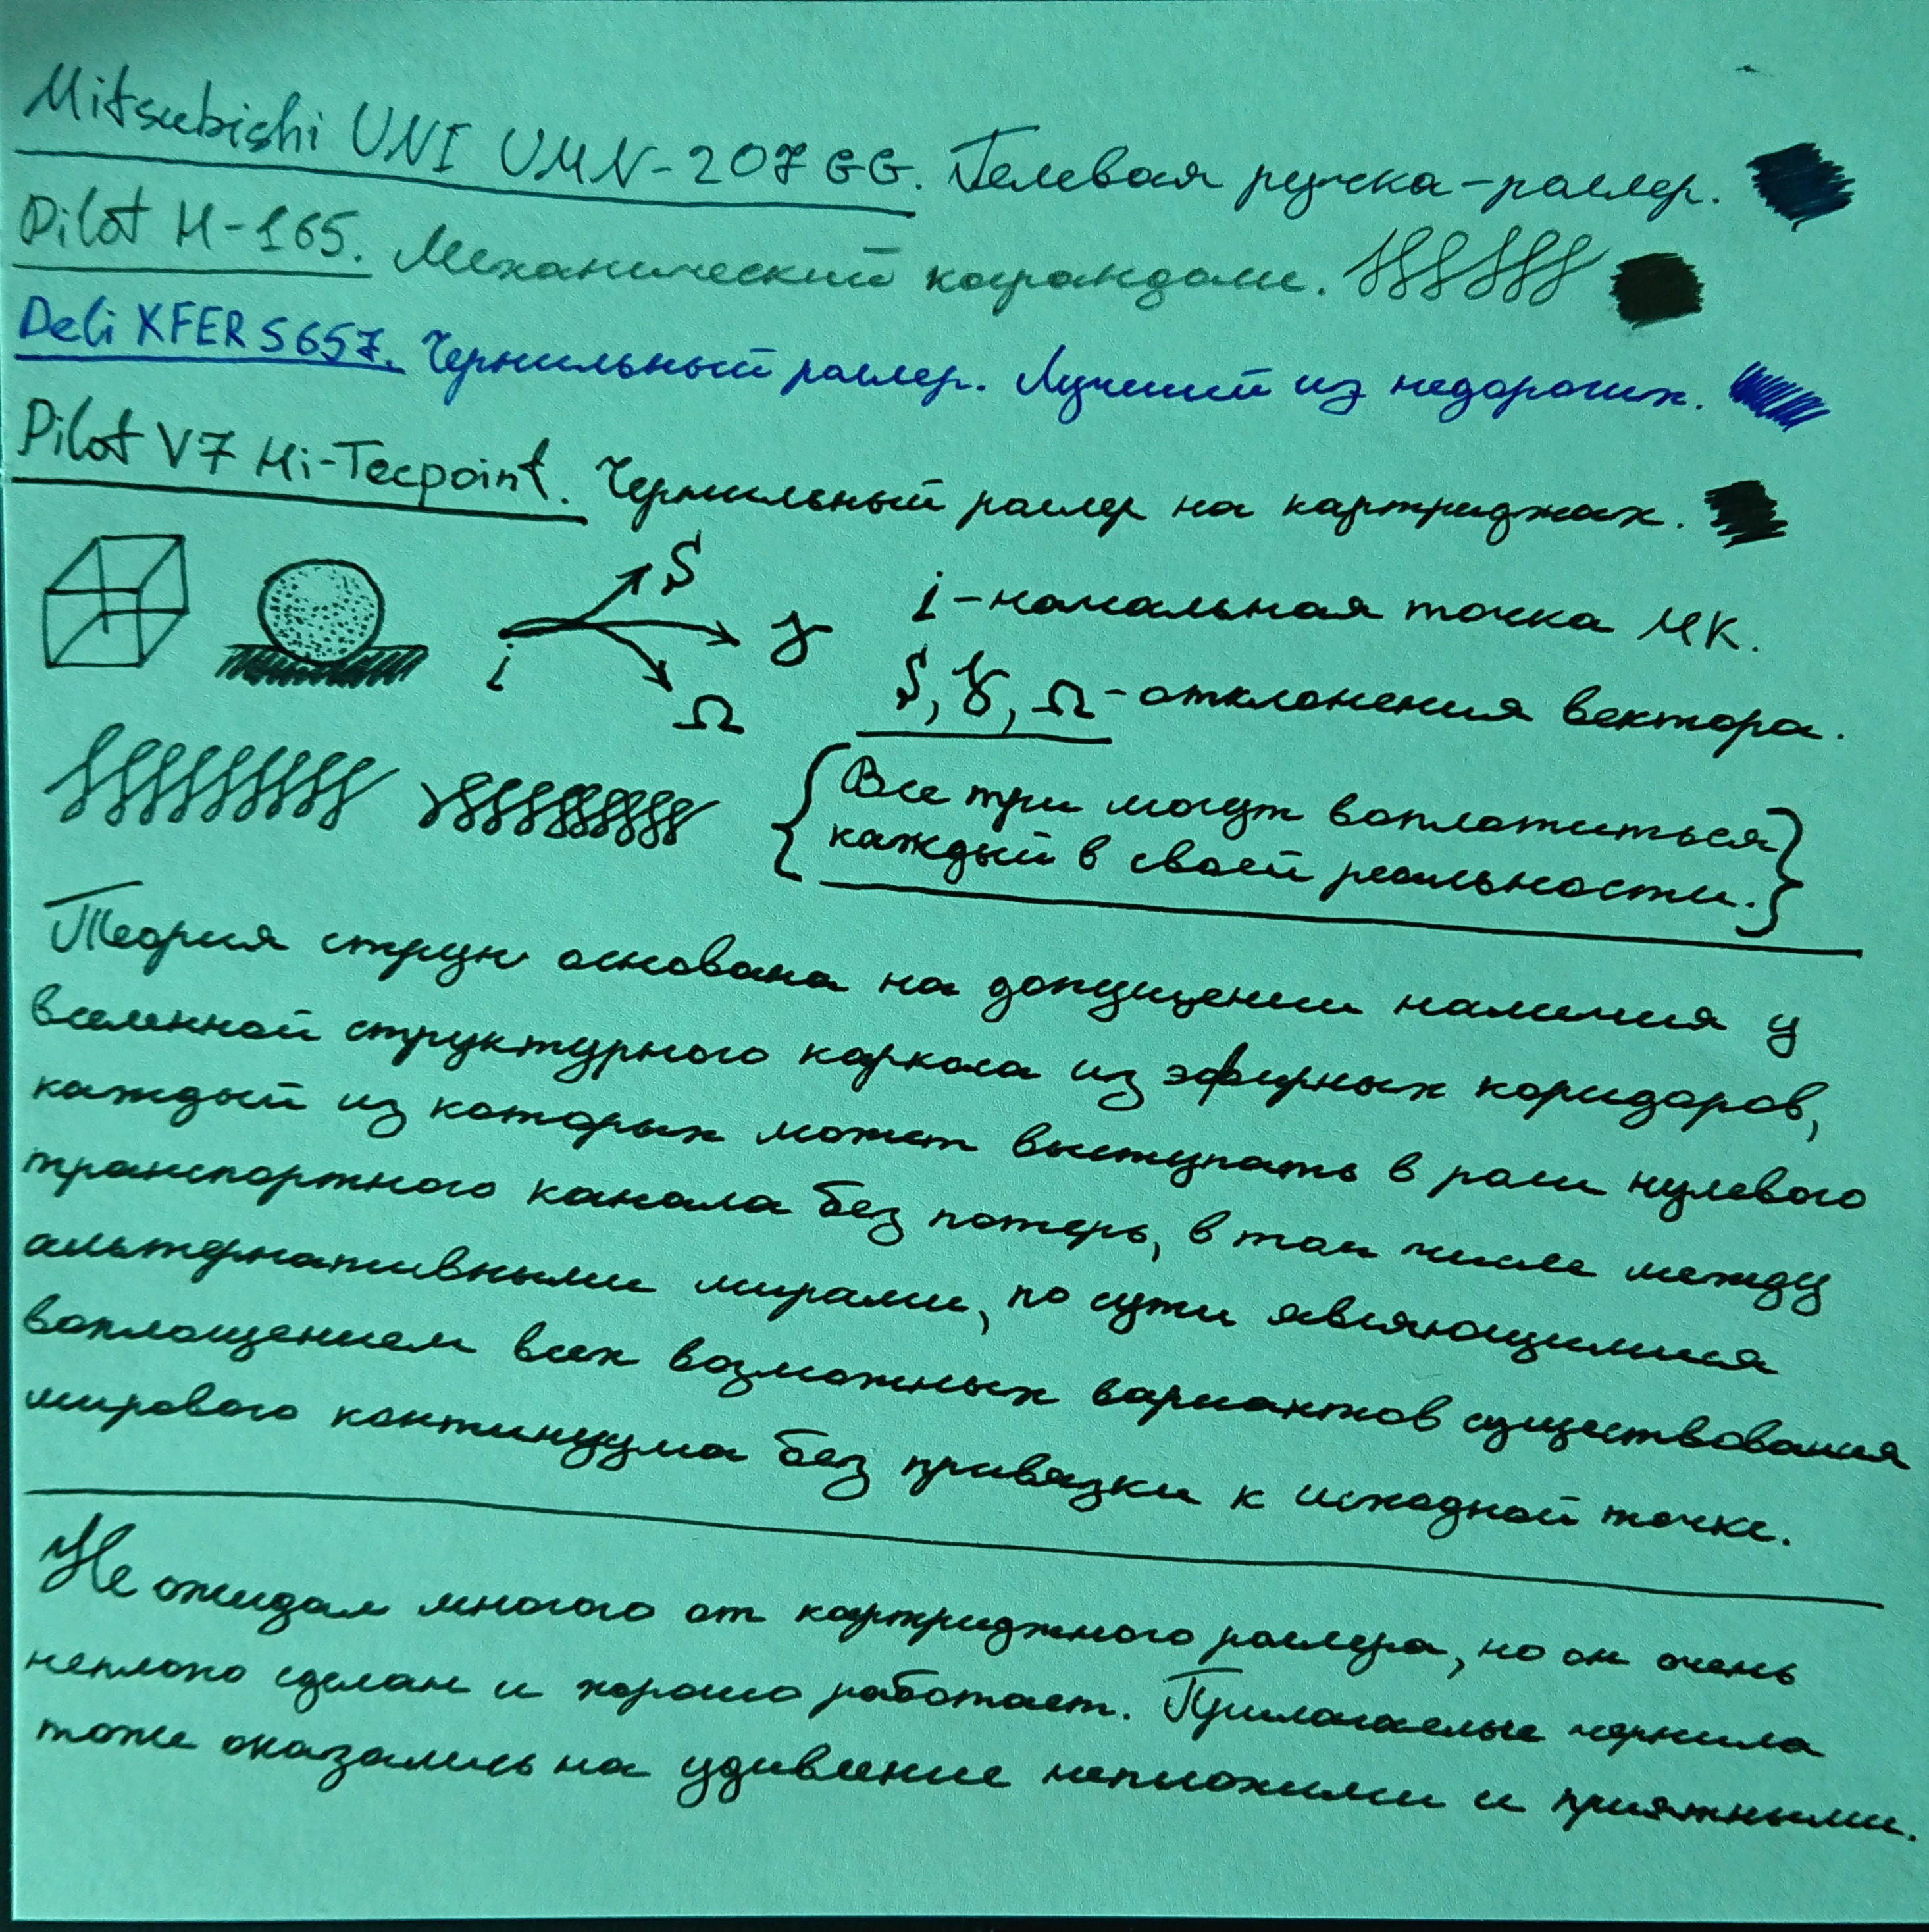 Mitsubishi UNI UMN-207GG. Гелевая ручка-роллер.
Pilot H-165. Механический карандаш.
Deli XFER S657. Чернильный роллер. Лучший из недорогих.
Pilot V7 Hi-Tecpoint. Чернильный роллер на картриджах.
i-начальная точка МК.
S, γ, Ω-отклонения вектора.
S
γ
i
Ω
{Все три могут воплотиться
каждый в своей реальности.}
Теория струн основана на допущении наличия у
вселенной структурного каркаса из эфирных коридоров,
каждый из которых может выступать в роли нулевого
транспортного канала без потерь, в том числе между
альтернативными мирами, по сути являющимися
воплощением всех возможных вариантов существования
мирового континуума без привязки к исходной точке.
Не ожидал многого от картриджного роллера, но он очень
неплохо сделан и хорошо работает. Прилагаемые чернила
тоже оказались на удивление неплохими и приятными.